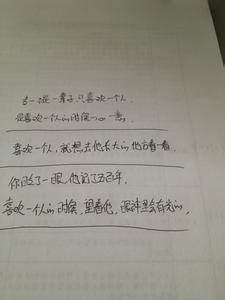 去一定一辈子只喜欢一个人
但喜欢一个人的时候一心一意,
喜欢一个人,就想去他长大的地方看看。
你陪了一眼,他记了五百年,
喜欢一个人的时候,望着他,眼神里会有光的。